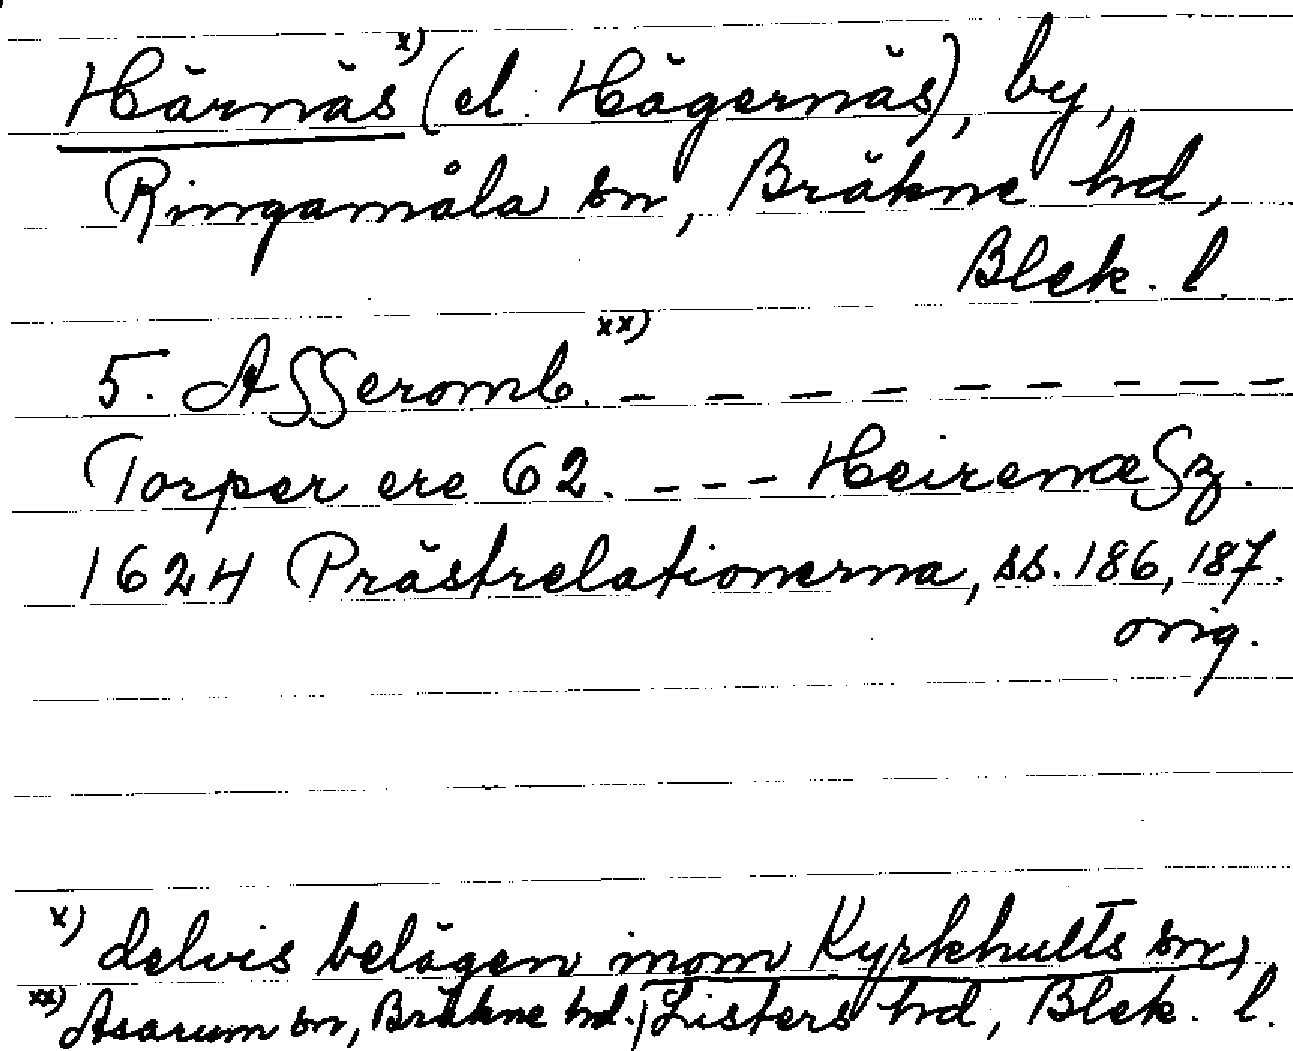 Härnäs x) (el. Hägernäs), by,
Ringamåla sn, Bräkne hd,
Blek. l.
5. ASSeromb. xx) - - - - - - - - -
Torper ere 62. - - - HeirenæSz.
1624 Prästrelationerna, ss. 186, 187.
orig.
x) delvis belägen inom Kyrkhults sn,
Listers hd, Blek. l.
xx) Asarum sn, Bräkne hd.